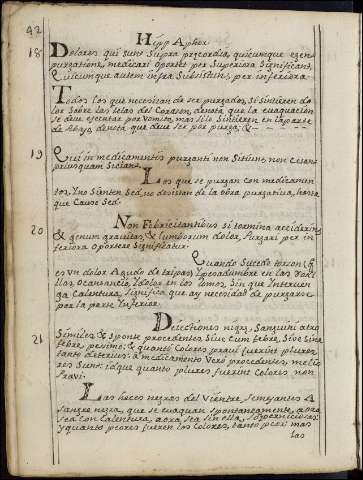 42
Hipp Aphor
18 Dolores qui sunt Supra præcordia, quicumque egen
purgatione, medicari oportet per Superiora Significant,
Quicumque autem infra Subsistunt, per inferiora.
Todos los que necesitan de ser purgados, si sintieren do
lor Sobre las telas del Corazon, denota que la evaquacion
se deve executar por Vomito, mas si lo Sintieren en la parte
de Abajo, denota que deve ser por purga; &
19 Qui in medicamentis purganti non Sitiunt, non Cesant
priusquam Sitiant.
Los que se purgan con medicamen
tos, Y no Sienten Sed, no desistan de la obra purgativa, hasta
que Cause Sed.
20 Non Febricitantibus si tormina acciderint
& genum gravitas, & lumborum dolor, Purgari per in
feriora oportere Significatur.
Quando Sucede torsion,
es un dolor Agudo de tripas, Y pesadumbre en las Rodi
llas, Y dolor en los lomos, Sin que Interven
ga Calentura, Significa que ay necesidad de purgarse
por la parte Inferior.
21 Deiectiones nigræ, Sanguini atro
Similes & Sponte procedentes, Sive cum febre, Sive Sine
febre, pesimo; & quanto Colores pravi fuerint plures,
tanto deterius: à medicamento Vero procedentes, melio
res Sunt: idque quanto plures fuerint Colores non
Pravi.
Las heces negras del Vientre, Semejantes A
Sangre negra, que se evaquan Spontaneamente, aora
sea con Calentura, aora sea sin ella, son perniciosas
Y quanto peores fueren los Colores, tanto peor mas
las